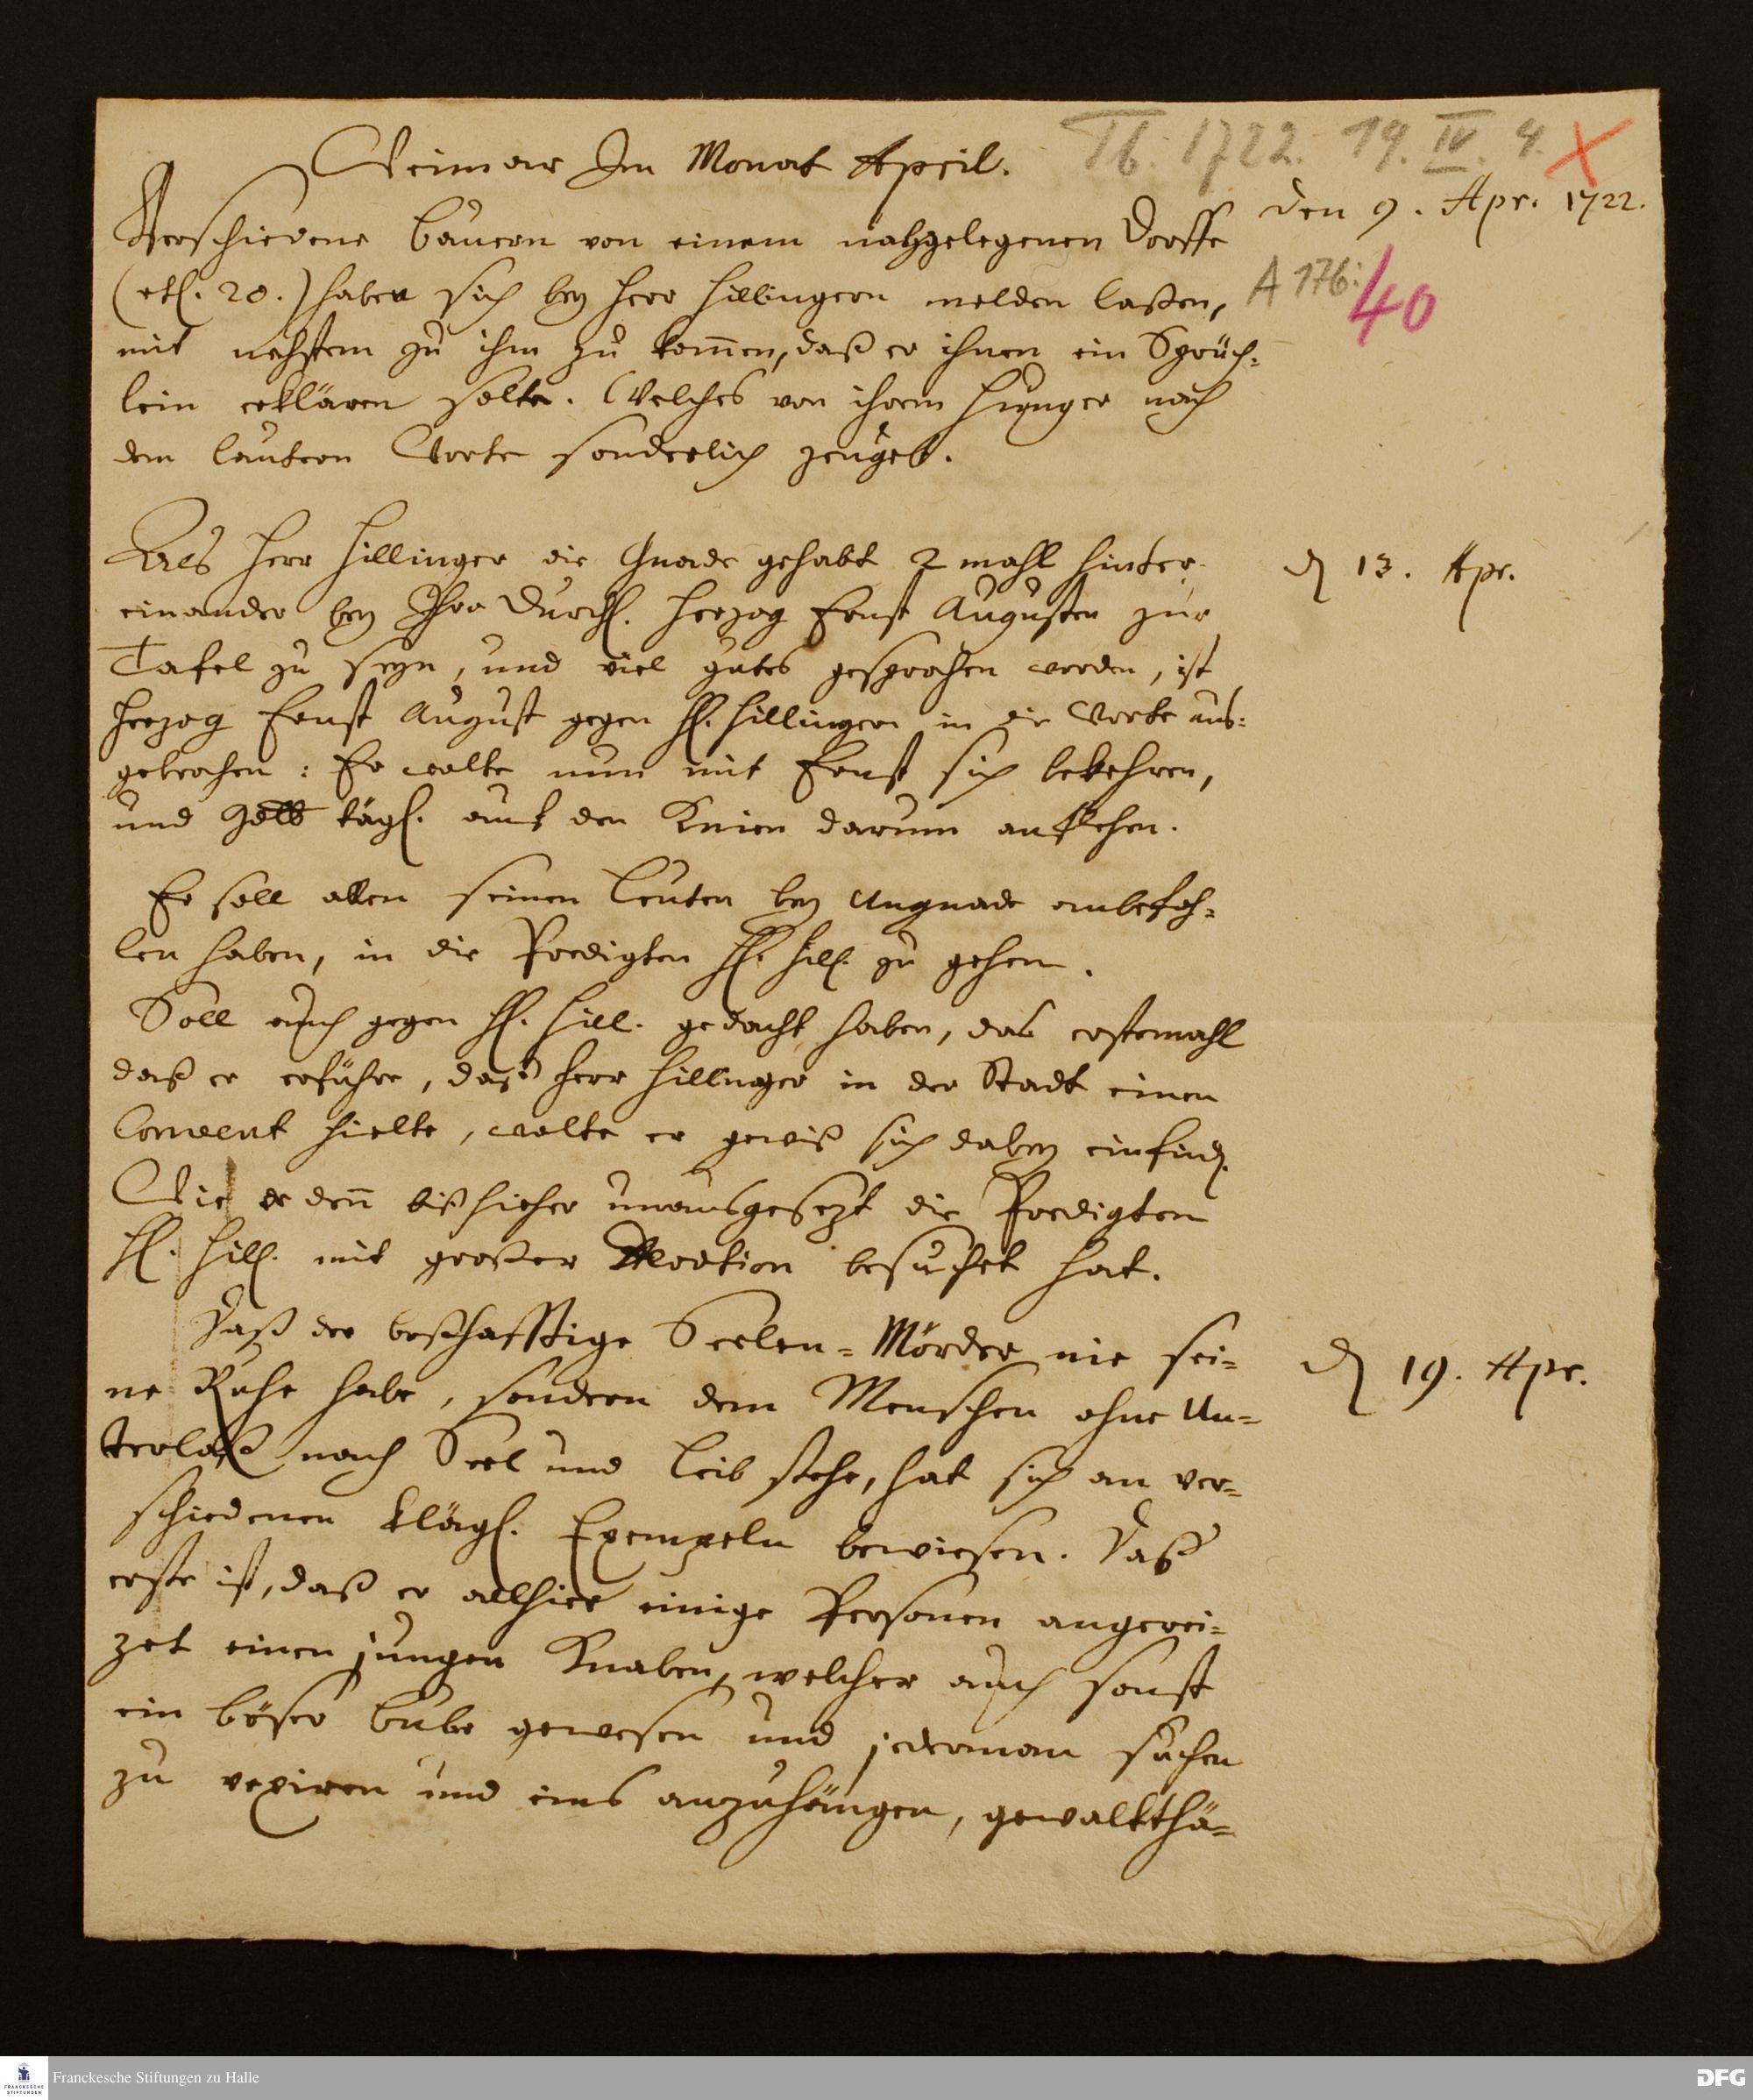 Weimar Im Monat April.
Tb. 1722. 19. IV. 4. X
den 9. Apr. 1722.
A 176: 40
Verschiedene Bauern von einem nahgelegenen Dorffe
(etl. 20.) haben sich bey Herr Hillingern melden laßen,
mit nehstem zu ihm zu kom̄en, daß er ihnen ein Sprüch=
lein erklären solte. Welches von ihrem Hunger nach
dem lautern Worte sonderlich zeuget.
d 13. Apr.
Als Herr Hillinger die Gnade gehabt 2 mahl hinter
einander bey Ihro Durchl. Herzog Ernst Augusten zur
Tafel zu seyn, und viel gutes gesprochen worden, ist
Herzog Ernst August gegen H. Hillingern in die Worte aus=
gebrochen: Er wolte nun mit Ernst sich bekehren,
und Gott tägl. auf den Knien darum anflehen.
Er soll allen seinen Leuten bey Ungnade anbefoh=
len haben, in die Predigten H. Hill. zu gehen.
Soll auch gegen H. Hill. gedacht haben, das erstemahl
daß er erführe, daß Herr Hillinger in der Stadt einen
Convent hielte, wolte er gewiß sich dabey einfind.
Wie er den̄ bißhieher unausgesezt die Predigten
H. Hill. mit großer besuchet hat.
d 19. Apr.
Daß der boßhafftige Seelen=Mörder nie sei=
ne Ruhe habe, sondern dem Menschen ohne Un=
terlaß nach Seel und Leib stehe, hat sich an ver=
schiedenen klägl. Exempeln bewiesen. Daß
erste ist, daß er allhier einige Personen angerei=
zet einen jungen Knaben, welcher auch sonst
ein böser Bube gewesen und jederman suchen
zu vexiren und eins anzuhängen, gewaltthä=
FRANCKESCHE STIFTUNGEN
Franckesche Stiftungen zu Halle
DFG